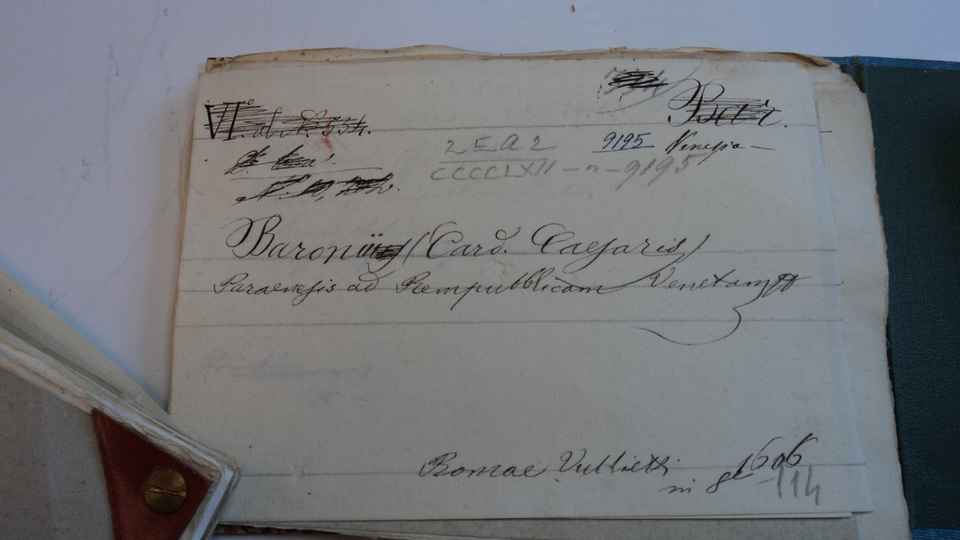 VI.° d. N. 334.
Betr.
2 E A 2
9195
Venezia —
CCCCLXII - n - 9195
Baronii (Card. Caesaris)
Paraenesis ad Rempubblicam Venetam
Romae Vullietti 1606
in 8º
114